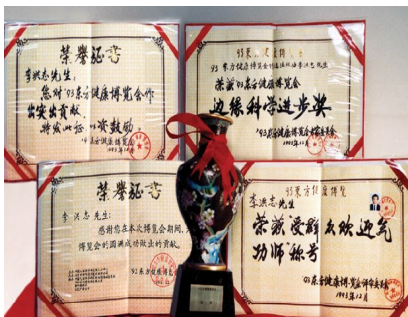 荣誉证书
李洪志先生:
您对'93东方健康博览会作
出突出贡献,
特发此证,以资鼓励。
'93东方健康博览会
1993年12月
93东方健康博览会
李洪志先生:
荣获'93东方健康博览会
边缘科学进步奖
'93东方健康博览会
1993年12月
荣誉证书
李洪志先生:
感谢您在本次博览会期间,
博览会的圆满成功做出的贡献。
92东方健康博览会
93东方健康博览
李洪志先生
荣获受群众欢迎气
功师"称号
'93东方健康博览会评学委员会
1993年12月